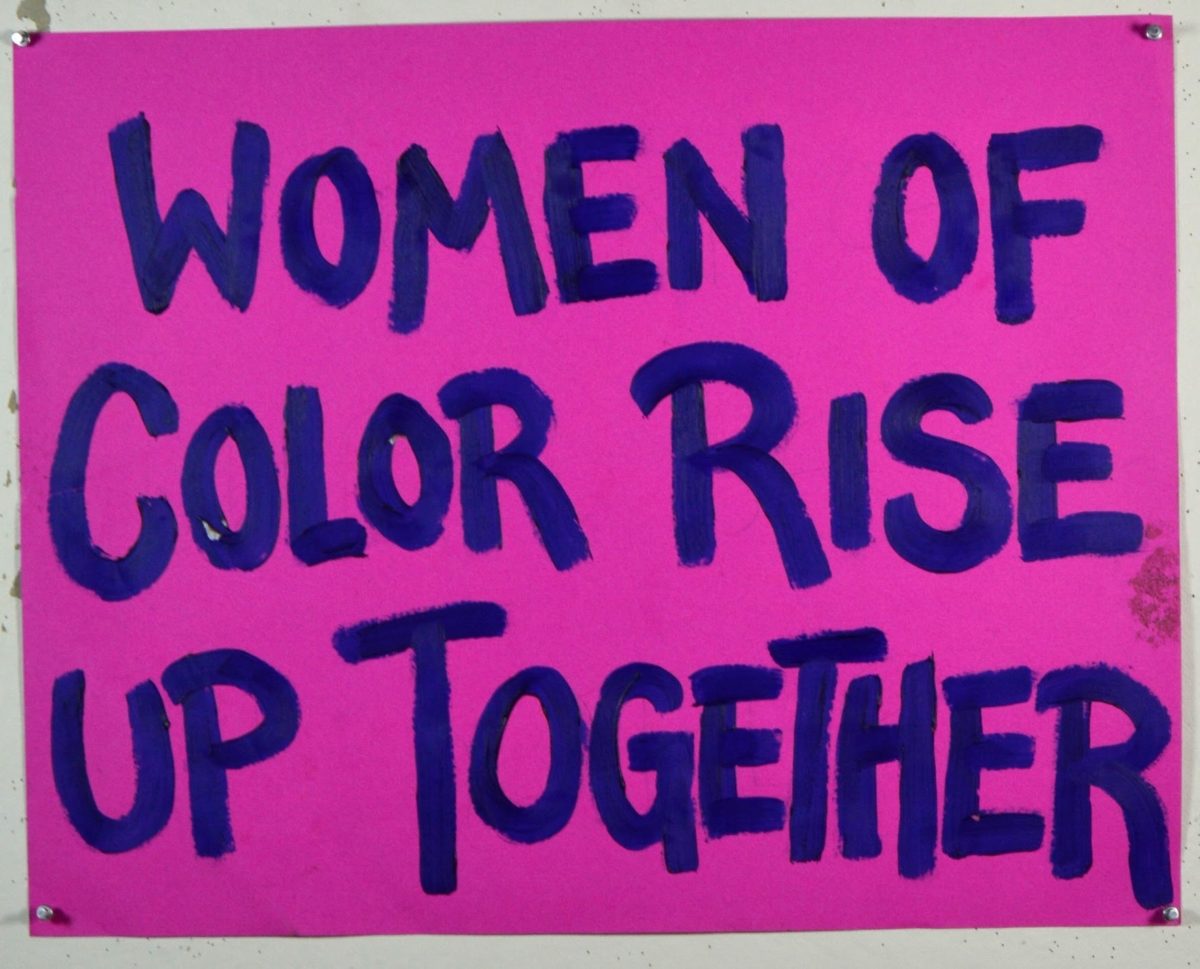 WOMEN OF
COLOR RISE
UP TOGETHER